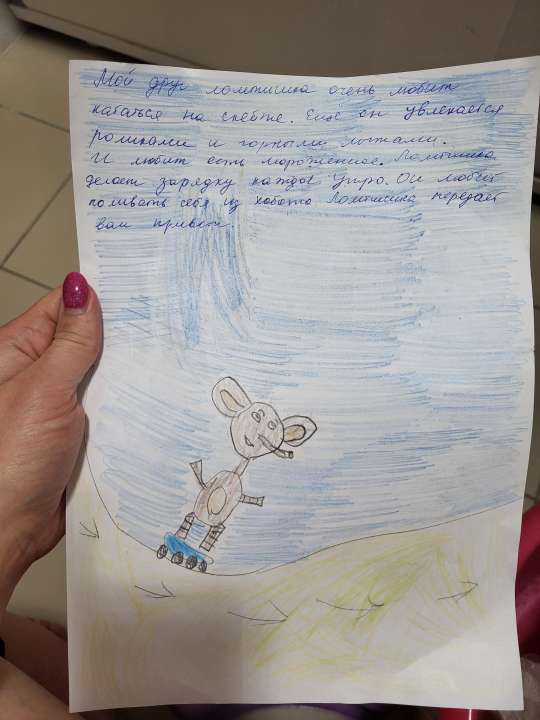 Мой друг ломтишка очень любит
кататься на скейте. Ещё он увлекается
роликами и горными лыжами.
И любит есть мороженное. Ломтишка
делает зарядку каждое утро. Он любит
поливать себя из хобота Ломтишка передаёт
вам привет.